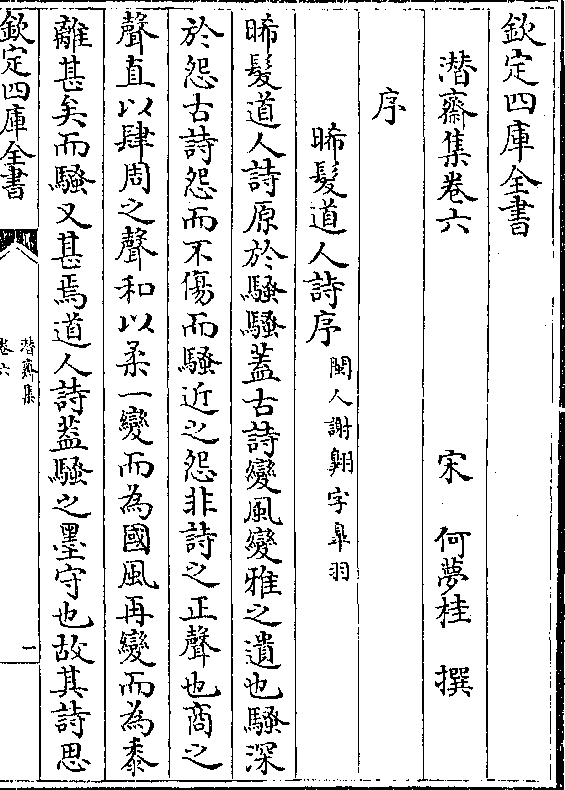 欽定四庫全書
潛齋集卷六
宋 何夢桂 撰
序
晞髮道人詩序 閩人謝翺字臯羽
晞髮道人詩原於騷騷蓋古詩變風變雅之遺也騷深
於怨古詩怨而不傷而騷近之怨非詩之正聲也商之
聲直以肆周之聲和以柔一變而為國風再變而為黍
離甚矣而騷又甚焉道人詩葢騷之墨守也故其詩思
欽定四庫全書
潛齋集
卷六
一